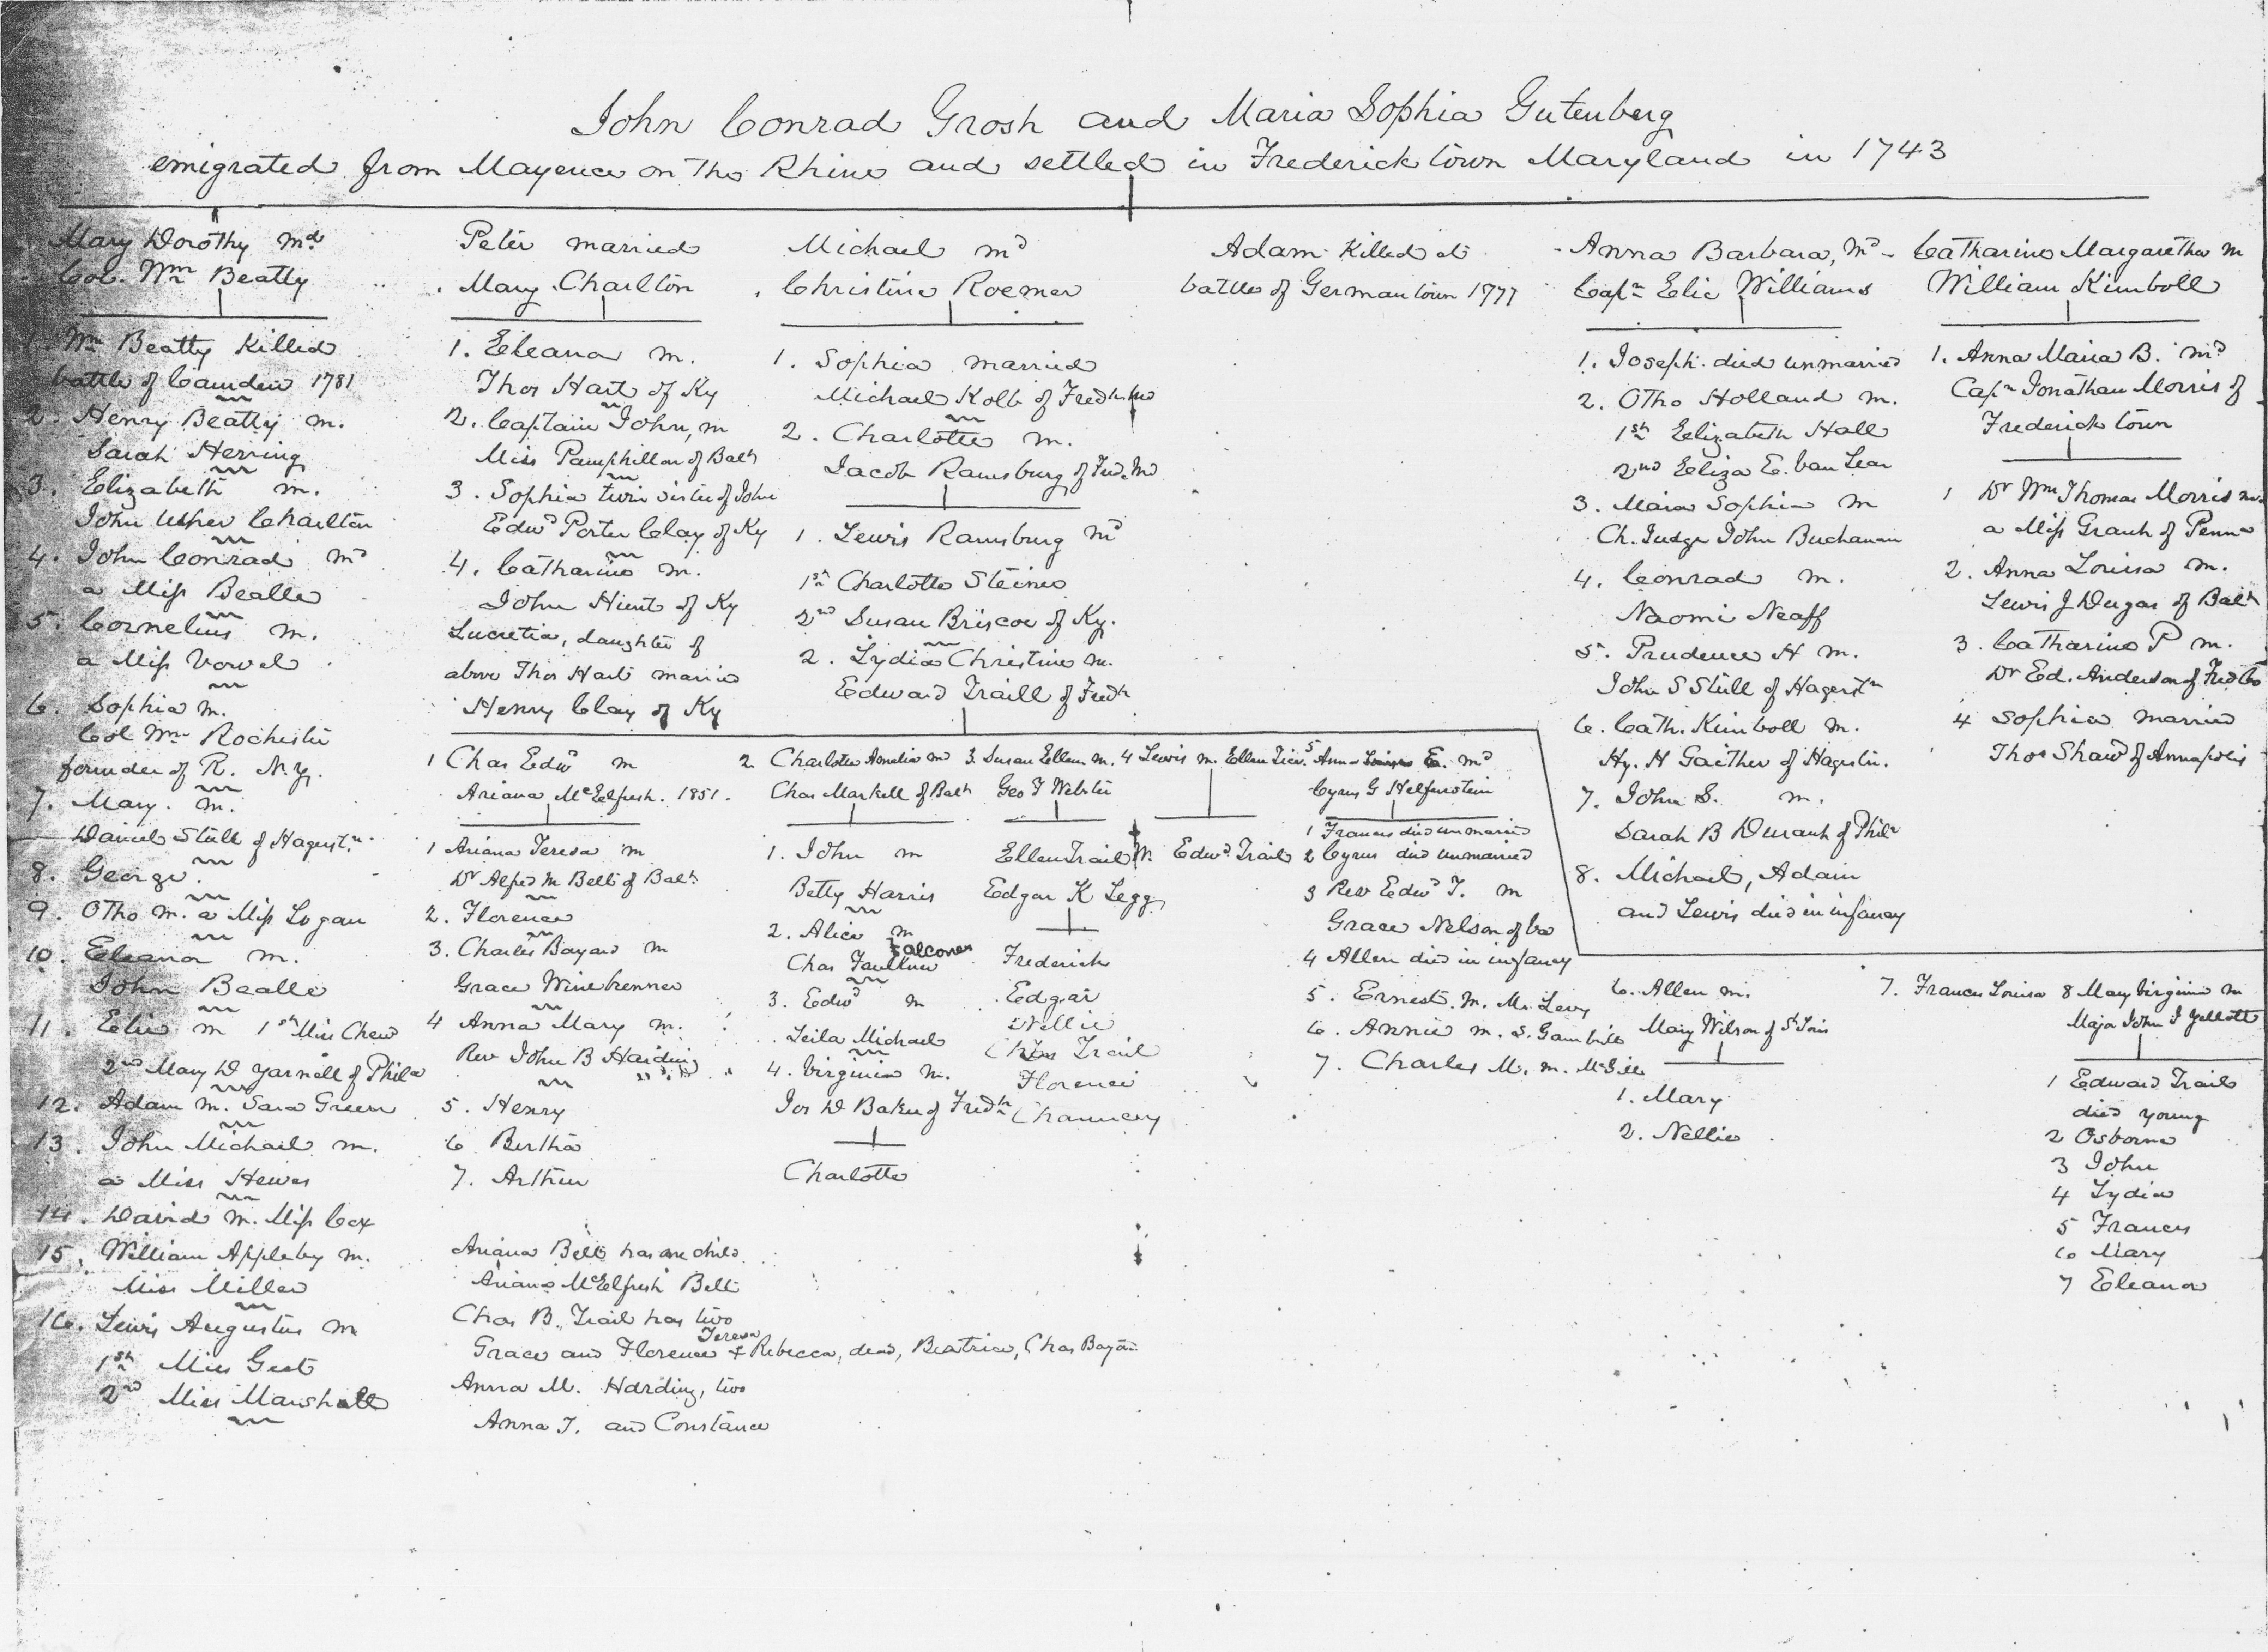 John Conrad Grosh and Maria Sophia Gutenberg
emigrated from Mayence on the Rhine and settled in Frederick town Maryland in 1743
Mary Dorothy md
Col. Wm Beatty
1. Wm Beatty Killed
battle of Camden 1781
2. Henry Beatty m.
Sarah Herring
3. Elizabeth m.
John Usher Charlton
4. John Conrad md
a Miss Bealle
5. Cornelius m.
a Miss Vowel
6. Sophia m.
Col Wm Rochester
founder of R. N.Y.
7. Mary. m.
Daniel Stull of Hagerstn
8. George.
9. Otho m. a Miss Logan
10. Eleanor m.
John Bealle
11. Elie m 1st Miss Chew
2nd Mary D Yarnall of Phila
12. Adam m. Sara Green
13. John Michael m.
a Miss Hewes
14. David m. Miss Cox
15. William Appleby m.
Miss Miller
16. Lewis Augustus m
1st Miss Gest
2nd Miss Marshall
Peter married
Mary Charlton
1. Eleanor m.
Thos Hart of Ky
2. Captain John, m
Miss Pamphillon of Balt
3. Sophia twin sister of John
Edwd Porter Clay of Ky
4. Catharine m.
John Hunt of Ky
Lucretia, daughter of
above Thos Hart married
Henry Clay of Ky
Michael md
Christine Roemer
1. Sophia married
Michael Kolb of Fredk Md
2. Charlotte m.
Jacob Ramsburg of Fred. Md
1. Lewis Ramsburg md
1st Charlotte Steiner
2nd Susan Briscoe of Ky.
2. Lydia Christine m.
Edward Traill of Fredk
Adam Killed at
battle of Germantown 1777
Anna Barbara, Md
Capn Elie Williams
1. Joseph died unmarried
2. Otho Holland m.
1st Elizabeth Hall
2nd Eliza E. Van Lear
3. Maria Sophia m
Ch. Judge John Buchanan
4. Conrad m.
Naomi Neaff
5. Prudence H m.
John S Stull of Hagerstn
6. Cath. Kimboll m.
Hy. H Gaither of Hagestn.
7. John S. m.
Sarah B Durant of Phila
8. Michael, Adam
and Lewis died in infancy
Catharine Margaretha m
William Kimboll
1. Anna Maria B. md
Capn Jonathan Morris of
Frederick town
1 Dr Wm Thomas Morris m.
a Miss Grant of Penna
2. Anna Louisa m.
Lewis J Dugas of Balt
3. Catharine P m.
Dr Ed. Anderson of Fred Co
4 Sophia married
Thos Shaw of Annapolis
1 Chas Edwd m
Ariana McElfresh. 1851.
1 Ariana Teresa m
Dr Alfred M Belt of Balt
2. Florence
3. Charles Bayard m
Grace Winebrenner
4 Anna Mary m.
Rev John B Harding
5. Henry
6 Bertha
7. Arthur
Ariana Belt has one child
Ariana McElfresh Belt
Chas B. Trail has two
Grace and Florence Teresa & Rebecca, dead, Beatrice, Chas Bayard
Anna M. Harding, two
Anna T. and Constance
2 Charlotte Amelia md
Chas Markell of Balt
1. John m
Betty Harris
2. Alice m
Chas Faulkner Falconer
3. Edwd m
Leila Michael
4. Virginia m.
Jos D Baker of Fredk
Charlotte
3. Susan Ellen m.
Geo F Webster
Ellen Trail m.
Edgar K Legg
Frederick
Edgar
Nellie
Chas Trail
Florence
Chauncey
4 Lewis m. Ellen
Edwd Trail
5 Anna Louisa E. md
Cyrus G Helfenstein
1 Francis died unmarried
2 Cyrus died unmarried
3 Rev Edwd T. m
Grace Nelson of Va
4 Allen died in infancy
5. Ernest. m. M. Levy
6. Annie m. S. Gambrill
7. Charles M. m. McGill
6. Allen m.
Mary Wilson of St Louis
1. Mary
2. Nellie
7. Frances Louisa
8 Mary Virginia m
Major John I Yellott
1 Edward Trail
died young
2 Osborne
3 John
4 Lydia
5 Frances
6 Mary
7 Eleanor